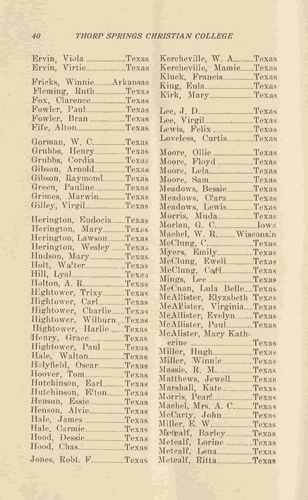 40 THORP SPRINGS CHRISTIAN COLLEGE
Ervin, Viola Texas
Ervin, Virtie Texas
Fricks, Winnie Arkansas
Fleming, Ruth Texas
Fox, Clarence Texas
Fowler, Paul Texas
Fowler, Bran Texas
Fife, Alton Texas
Gorman, W. C. Texas
Grubbs, Henry Texas
Grubbs, Cordia Texas
Gibson, Arnold Texas
Gibson, Raymond Texas
Green, Pauline Texas
Grimes, Marwin Texas
Gilley, Virgil Texas
Herington, Eudocia Texas
Herington, Mary Texas
Herington, Lawson Texas
Herington, Wesley Texas
Hudson, Mary Texas
Holt, Walter Texas
Hill, Lyal Texas
Holton, A. R. Texas
Hightower, Trixy Texas
Hightower, Carl Texas
Hightower, Charlie Texas
Hightower, Wilburn Texas
Hightower, Harlie Texas
Henry, Grace Texas
Hightower, Paul Texas
Hale, Walton Texas
Holyfield, Oscar Texas
Hoover, Tom Texas
Hutchinson, Earl Texas
Hutchinson, Elton Texas
Henson, Essie Texas
Henson, Alvie Texas
Hale, James Texas
Hale, Carmie Texas
Hood, Dessie Texas
Hood, Chas. Texas
Jones, Robt. F. Texas
Kercheville, W. A. Texas
Kercheville, Mamie Texas
Kluck, Francis Texas
King, Eula Texas
Kirk, Mary Texas
Lee, J. D. Texas
Lee, Virgil Texas
Lewis, Felix Texas
Loveless, Curtis Texas
Moore, Ollie Texas
Moore, Floyd Texas
Moore, Lela Texas
Moore, Sam Texas
Meadows, Bessie Texas
Meadows, Clara Texas
Meadows, Lewis Texas
Morris, Muda Texas
Morlan, G. C. Iowa
Machel, W. R. Wisconsin
McClung, C. Texas
Myers, Emily Texas
McClung, Ewell Texas
McClung, Carl Texas
Mings, Lee Texas
McCuan, Lula Belle Texas
McAllister, Elyzabeth Texas
McAllister, Virginia Texas
McAllister, Evelyn Texas
McAllister, Paul Texas
McAllister, Mary Kath-
erine Texas
Miller, Hugh Texas
Miller, Winnie Texas
Massie, R. M. Texas
Matthews, Jewell Texas
Marshall, Kate Texas
Morris, Pearl Texas
Machel, Mrs. A. C. Texas
McCarty, John Texas
Miller, E. W. Texas
Metcalf, Barley Texas
Metcalf, Lorine Texas
Metcalf, Lena Texas
Metcalf, Ritta Texas